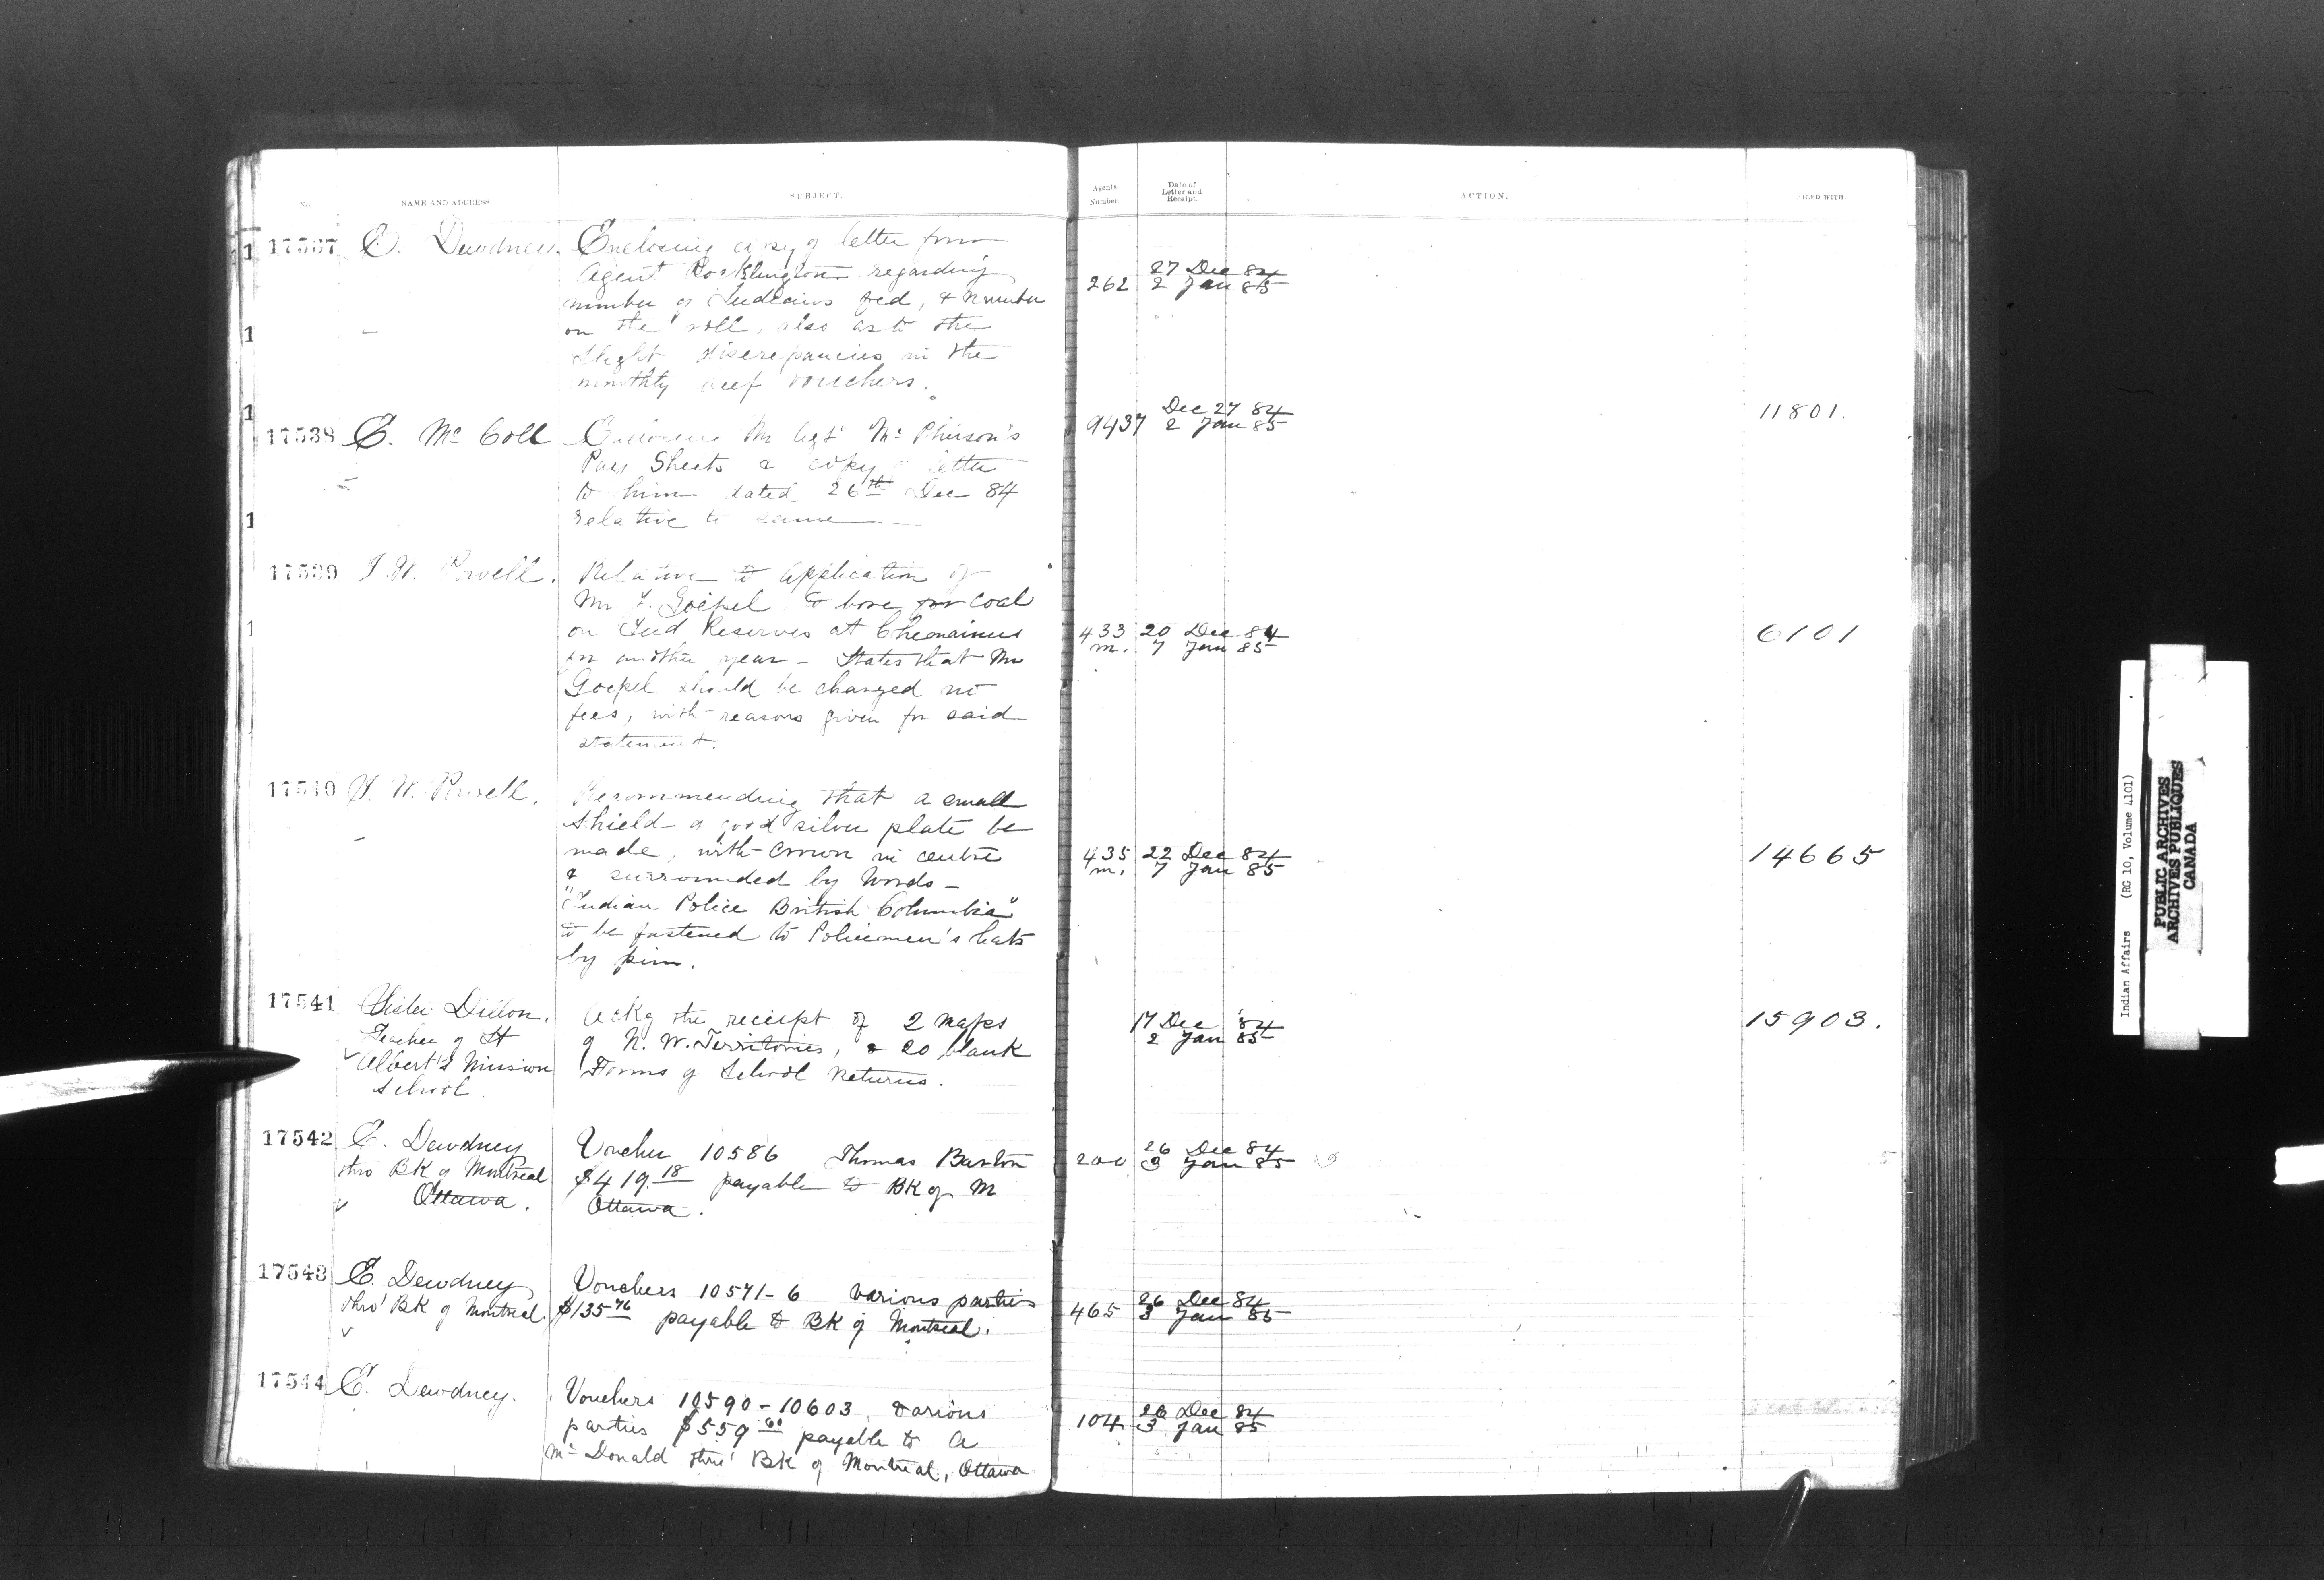 No.
NAME AND ADDRESS.
SUBJECT.
Agents Number.
Date of Letter and Receipt.
ACTION.
FILED WITH.
17537 E. Dewdney. Enclosing copy of letter from
Agent Pocklington regarding
number of Indians fed, & number
on the roll, also as to the
slight discrepancies in the
monthly beef vouchers.
262 27 Dec 84
2 Jan 85
17538 E. Mc Coll Enclosing Mr Agt Mc Pherson's
Pay Sheets & copy of letter
to him dated 26th Dec 84
relative to same
9437 Dec 27 84
2 Jan 85
11801.
17539 I. W. Powell. Relative to application of
Mr F. Goepel to bore for coal
on Ind Reserves at Chemainus
for another year - States that Mr
Goepel should be charged no
fees, with reasons given for said
statement.
433 20 Dec 84
m. 7 Jan 85
6101
17540 I. W. Powell. Recommending that a small
shield of good silver plate be
made, with crown in centre
& surrounded by words -
"Indian Police British Columbia"
to be fastened to Policemen's hats
by pins.
435 22 Dec 84
m. 7 Jan 85
14665
17541 Sister Dillon. Ackg the receipt of 2 maps
Teacher of St of N. W. Territories, & 20 blank
Albert's Mission Forms of School Returns.
School.
17 Dec 84
2 Jan 85
15903.
17542 E. Dewdney Voucher 10586 Thomas Barton
thro BK of Montreal $419.18 payable to BK of M
Ottawa. Ottawa.
200 26 Dec 84
3 Jan 85
17543 E. Dewdney Vouchers 10571-6 various parties
thro' BK of Montreal. $135 76 payable to BK of Montreal.
465 26 Dec 84
3 Jan 85
17544 E. Dewdney. Vouchers 10590-10603 various
parties $559 60 payable to A
Mc Donald thro' BK of Montreal, Ottawa
104 26 Dec 84
3 Jan 85
Indian Affairs (RG 10, Volume 4101)
PUBLIC ARCHIVES
ARCHIVES PUBLIQUES
CANADA